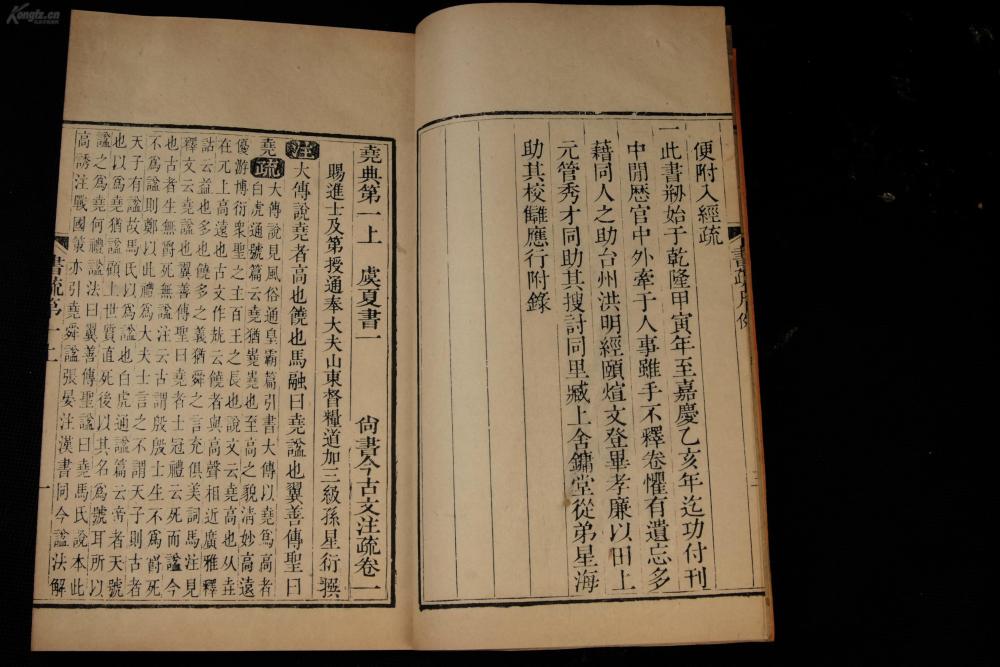 便附入經疏
一
此書刱始于乾隆甲寅年至嘉慶乙亥年迄功付刊
中閒歴官中外牽于人事雖手不釋卷懼有遺忘多
藉同人之助台州洪明經頤煊文登畢孝廉以田上
元管秀才同助其搜討同里臧上舍鏞堂從弟星海
助其校讎應行附錄
堯典第一上 虞夏書一 尙書今古文注疏卷一
賜進士及第授通奉大夫山東督糧道加三級孫星衍撰
注大傳說堯者高也饒也馬融曰堯謚也翼善傳聖曰
堯疏大傳說見風俗通皇霸篇引書大傳以堯爲高者
白虎通號篇云堯猶嶤嶤也至高之貌清妙高遠
優游博衍衆聖之主百王之長也說文云堯高也从垚
在兀上高遠也古文作兟云饒者與高聲相近廣雅釋
詁云益也多也饒多之義猶舜之言充俱美詞馬注見
釋文云堯謚也翼善傳聖曰堯者士冠禮云死而謚今
也古者生無爵死無謚注云古謂殷殷士生不爲爵死
不爲謚則鄭以此禮爲大夫士言之不謂天子則古者
天子有謚故馬氏以堯爲謚也白虎通謚篇云帝者天號
也以爲堯猶謚顧上世質直死後以其名爲號耳所以
謚之爲堯何禮謚法曰翼善傳聖謚曰堯馬氏說本此
高誘注戰國策亦引堯舜謚張晏注漢書同今謚法解
書疏第一上
一
三
Kongfz.cn